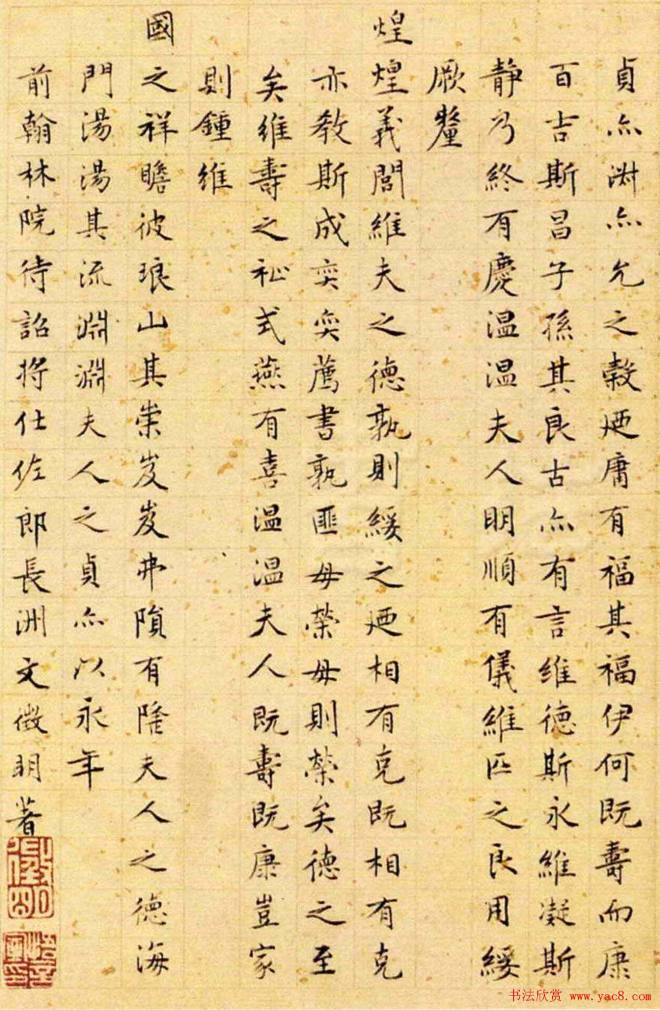 貞亦淑亦允之穀廼庸有福其福伊何既壽而康
百吉斯昌子孫其良古亦有言維德斯永維凝斯
静乃終有慶温温夫人明順有儀維匹之良用綏
厥釐
煌煌義閭維夫之德孰則綏之廼相有克既相有克
亦教斯成奕奕薦書孰匪母榮母則榮矣德之至
矣維壽之祉式燕有喜温温夫人既壽既康豈家
則鍾維
國之祥瞻彼琅山其崇岌岌弗隕有隆夫人之德海
門湯湯其流淵淵夫人之貞亦以永年
前翰林院待詔將仕佐郎長洲文徵明著
书法欣赏 www.yac8.com